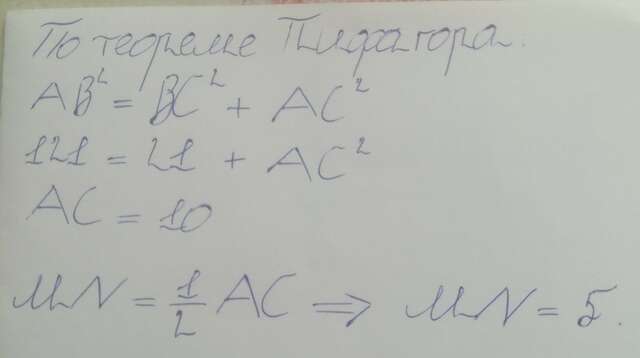 По теореме Пифагора.
AB² = BC² + AC²
121 = 21 + AC²
AC = 10
MN = 1/2 AC ⇒ MN = 5.